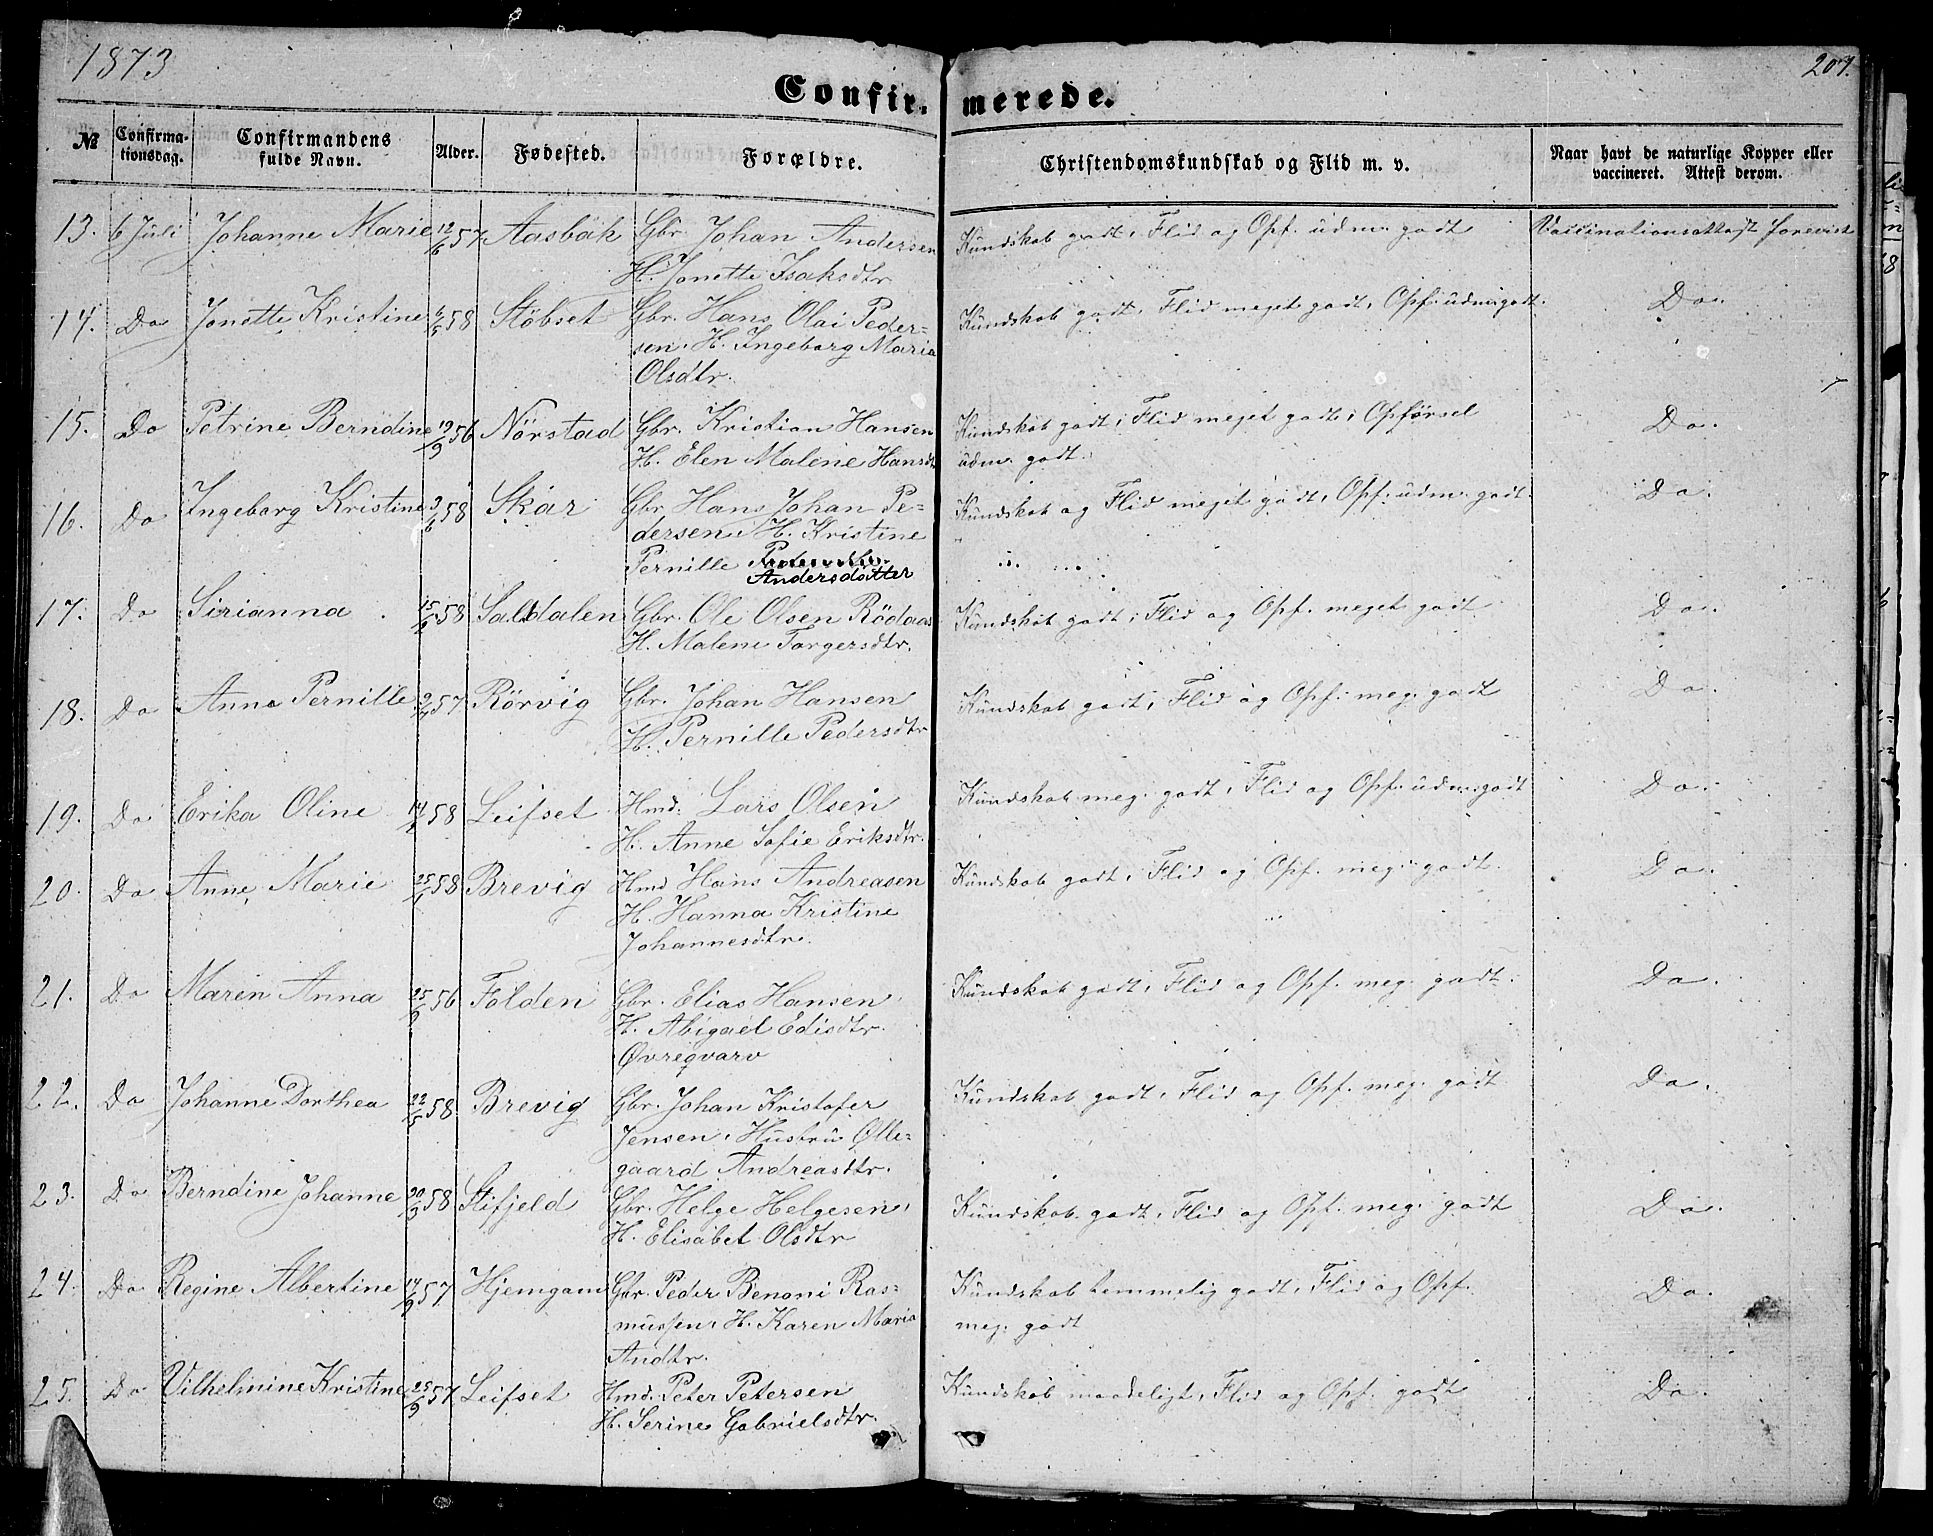 1873
207.
Confir- merede.
№ Confirma- tionsdag. Confirmandens fulde Navn. Alder. Fødested. Forældre. Christendomskundskab og Flid m. v. Naar havt de naturlige Kopper eller vaccineret. Attest derom.
13. 6 Juli Johanne Marie 12/6 57 Aasbäk Gbr. Johan Andersen Kundskab godt, Flid og Opf. udm. godt Vaccinationsattest forevist
H. Jonette Isaksdtr
14. Do Jonette Kristine 6/5 58 Støbset Gbr. Hans Olai Peder- Kundskab godt, Flid meget godt, Opf. udm. godt. Do.
sen. H. Ingeborg Maria
Olsdtr.
15. Do Petrine Berndine 19/9 56 Nörstad Gbr. Kristian Hansen Kundskab godt, Flid meget godt, Opförsel Do.
H. Elen Malene Hansdt udm. godt.
16. Do Ingeborg Kristine 3/6 58 Skar Gbr. Hans Johan Pe- Kundskab og Flid meget godt, Opf. udm. godt. Do.
dersen, H. Kristine
Pernille
Andersdatter
17. Do Sirianna 15/2 58 Saltdalen Gbr. Ole Olsen Rödaas Kundskab godt, Flid og Opf. meget godt Do.
H. Malene Torgersdtr.
18. Do Anne Pernille 2/4 57 Rörvig Gbr. Johan Hansen Kundskab godt, Flid og Opf. meg. godt Do.
H. Pernille Pedersdtr
19. Do Erika Oline 58 Leifset Hmd. Lars Olsen Kundskab meg. godt, Flid og Opf. udm. godt Do.
H. Anne Sofie Eriksdtr.
20. Do Anne Marie 25/1 58 Brevig Hmd Hans Andreasen Kundskab godt, Flid og Opf. meg. godt. Do.
H. Hanna Kristine
Johannesdtr.
21. Do Maren Anna 56 Folden Gbr. Elias Hansen Kundskab godt, Flid og Opf. meg. godt. Do.
H. Abigael Edisdtr.
Øvreqvarv
22. Do Johanne Dorthea 22/5 58. Brevig Gbr. Johan Kristofer Kundskab godt, Flid og Opf. meg. godt Do.
Jensen, Hustru Ølle-
gaard Andreasdtr.
23. Do Berndine Johanne 58 Stifjeld Gbr. Helge Helgesen, Kundskab godt, Flid og Opf. meg. godt Do.
H. Elisabet Olsdtr
24. Do Regine Albertine 14/9 57 Hjemgam Gbr. Peder Benoni Ras- Kundskab temmelig godt, Flid og Opf. Do.
mussen, H. Karen Maria meg. godt
Andtr.
25. Do Vilhelmine Kristine 25/9 57 Leifset Hmd. Peter Petersen Kundskab maadeligt, Flid og Opf. godt Do.
H. Serine Gabrielsdtr.